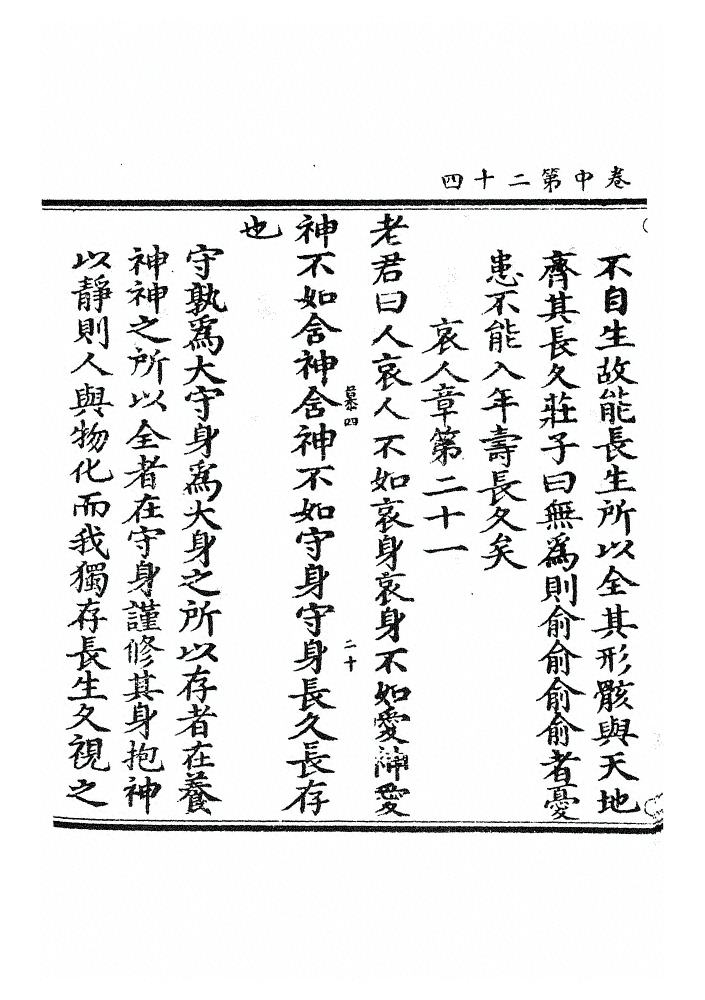 卷中第二十四
不自生故能長生所以全其形骸與天地
齊其長久莊子曰無爲則俞俞俞俞者憂
患不能入年壽長久矣
哀人章第二十一
老君曰人哀人不如哀身哀身不如愛神愛
慕四
二十
神不如舍神舍神不如守身守身長久長存
也
守孰爲大守身爲大身之所以存者在養
神神之所以全者在守身謹修其身抱神
以靜則人與物化而我獨存長生久視之